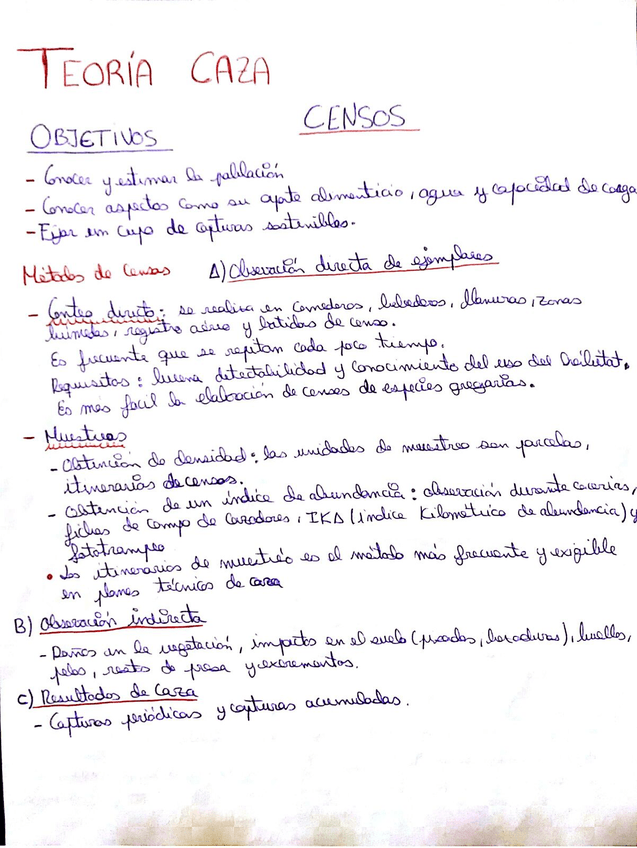 TEORÍA CAZA
CENSOS
OBJETIVOS
- Conocer y estimar la población
- Conocer aspectos como su aporte alimenticio, agua y capacidad de carga
- Fijar un cupo de capturas sostenibles.
Métodos de Censos A) Observación directa de ejemplares
- Conteo directo: se realiza en comederos, bebederos, llanuras, zonas
húmedas, registro aéreo y batidas de censo.
Es frecuente que se repitan cada poco tiempo.
Requisitos: buena detectabilidad y conocimiento del uso del hábitat.
Es más fácil la elaboración de censos de especies gregarias.
- Muestreos
- Obtención de densidad: las unidades de muestreo son parcelas,
itinerarios de censos.
- Obtención de un índice de abundancia: observación durante cacerías,
fichas de campo de cazadores, IKA (índice Kilométrico de abundancia) y
fototrampeo
• Los itinerarios de muestreo es el método más frecuente y exigible
en planes técnicos de caza
B) Observación indirecta
- Daños en la vegetación, impacto en el suelo (hozaduras), huellas,
pelos, restos de presa y excrementos.
C) Resultados de Caza
- Capturas periódicas y capturas acumuladas.